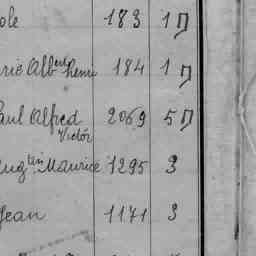 ole 183 1 D
ric Albert Henri 184 1 D
Paul Alfred 2069 5 D
Victor
ug tin Maurice 1295 3
Jean 1171 3